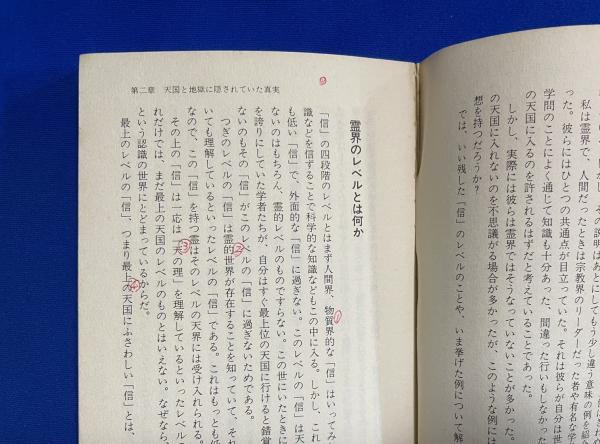 その説明はあとにしてもう少し違う意味の例を紹
私は霊界で、人間だったときは宗教界のリーダーだった者や有名な学
った。彼らにはひとつの共通点が目立っていた。それは彼らが自分は世
学問のことによく通じて知識も十分あった、間違った行いもしなかっ
の天国に入るのを許されるはずだと考えていることであった。
しかし、実際には彼らは霊界ではそうなっていないことが多かった。
の天国に入れないのを不思議がる場合が多かったが、このような例には
想を持つだろうか？
では、いい残した「信」のレベルのことや、いま挙げた例について解
第二章 天国と地獄に隠されていた真実
霊界のレベルとは何か
「信」の四段階のレベルとはまず人間界、物質界的な「信」はいってみ
識などを信ずることで科学的な知識などもこの中に入る。しかし、これ
も低い「信」で、外面的な「信」に過ぎない。このレベルの「信」は天
ないのはもちろん、霊的レベルのものですらない。この世にいたときに
を誇りにしていた学者たちが、自分はすぐ最上位の天国に行けると錯覚
ないのもその「信」がこのレベルの「信」に過ぎないためである。
つぎのレベルの「信」は霊的世界が存在することを知っていて、それ
いても理解しているといったレベルの「信」である。これはもっとも低
なので、この「信」を持つ霊はそのレベルの天界には受け入れられる。
その上の「信」は一応は「天の理」を理解しているといったレベル
れだけでは、まだ最上の天国のレベルのものとはいえない。なぜなら、
という認識の世界にとどまっているからだ。
最上のレベルの「信」、つまり最上の天国にふさわしい「信」とは、
①
②
③
④